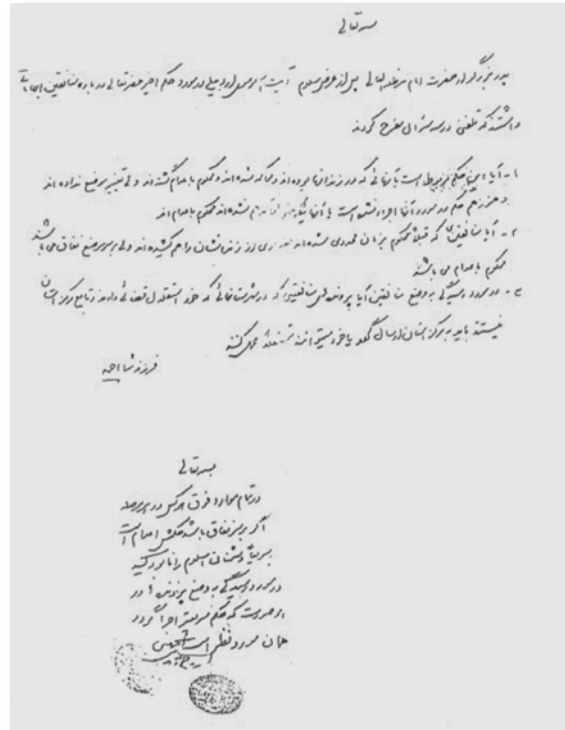 بسمه تعالی
پدر بزرگوار حضرت امام مدظله العالی پس از عرض سلام آیت الله موسوی اردبیلی در مورد حکم اخیر حضرتعالی درباره منافقین ابهاماتی
داشتند که تلفنی در سه سؤال مطرح کردند
۱- آیا این حکم مربوط است به آنهائی که در زندانها بوده‌اند و محاکمه شده‌اند و محکوم به اعدام گشته‌اند ولی تغییر موضع نداده‌اند
و هنوز هم حکم در مورد آنها اجرا نشده است یا آنهائیکه حتی محاکمه هم نشده‌اند محکوم به اعدامند
۲- آیا منافقین که قبلاً محکوم به زندان محدودی شده‌اند و مقداری از زندانشان را هم کشیده‌اند ولی بر سر موضع نفاق می‌باشند
محکوم به اعدام می‌باشند
۳- در مورد رسیدگی به وضع منافقین آیا پرونده‌های منافقینی که در شهرستانهائی که خود استقلال قضائی دارند و تابع مرکز استان
نیستند باید به مرکز استان ارسال گردد یا خود میتوانند مستقلاً عمل کنند
فرزند شما احمد
بسمه تعالی
در تمام موارد فوق هر کس در هر مرحله
اگر بر سر نفاق باشد حکمش اعدام است
سریعاً دشمنان اسلام را نابود کنید
در مورد رسیدگی به وضع پرونده‌ها در
هر صورت که حکم سریعتر اجرا گردد
همان مورد نظر است